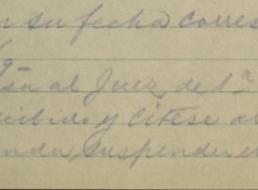 n su fecha corres
sa al Juez de 1ª
cibido y Citese a
nda, suspender